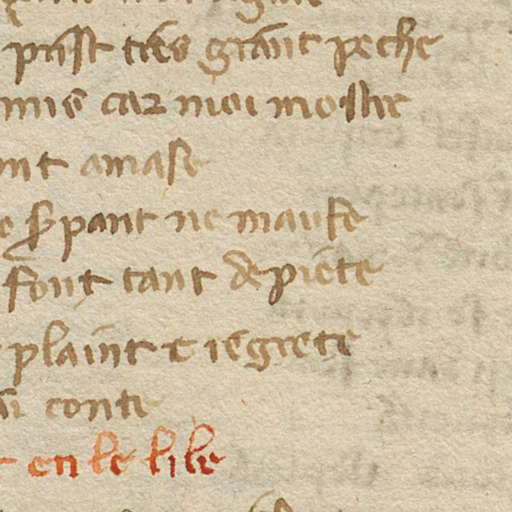 prist tres grant peche
mis car moi mostre
ont amase
serpant ne maufe
font tant de piete
plaint e regrete
ai conte
en le lile